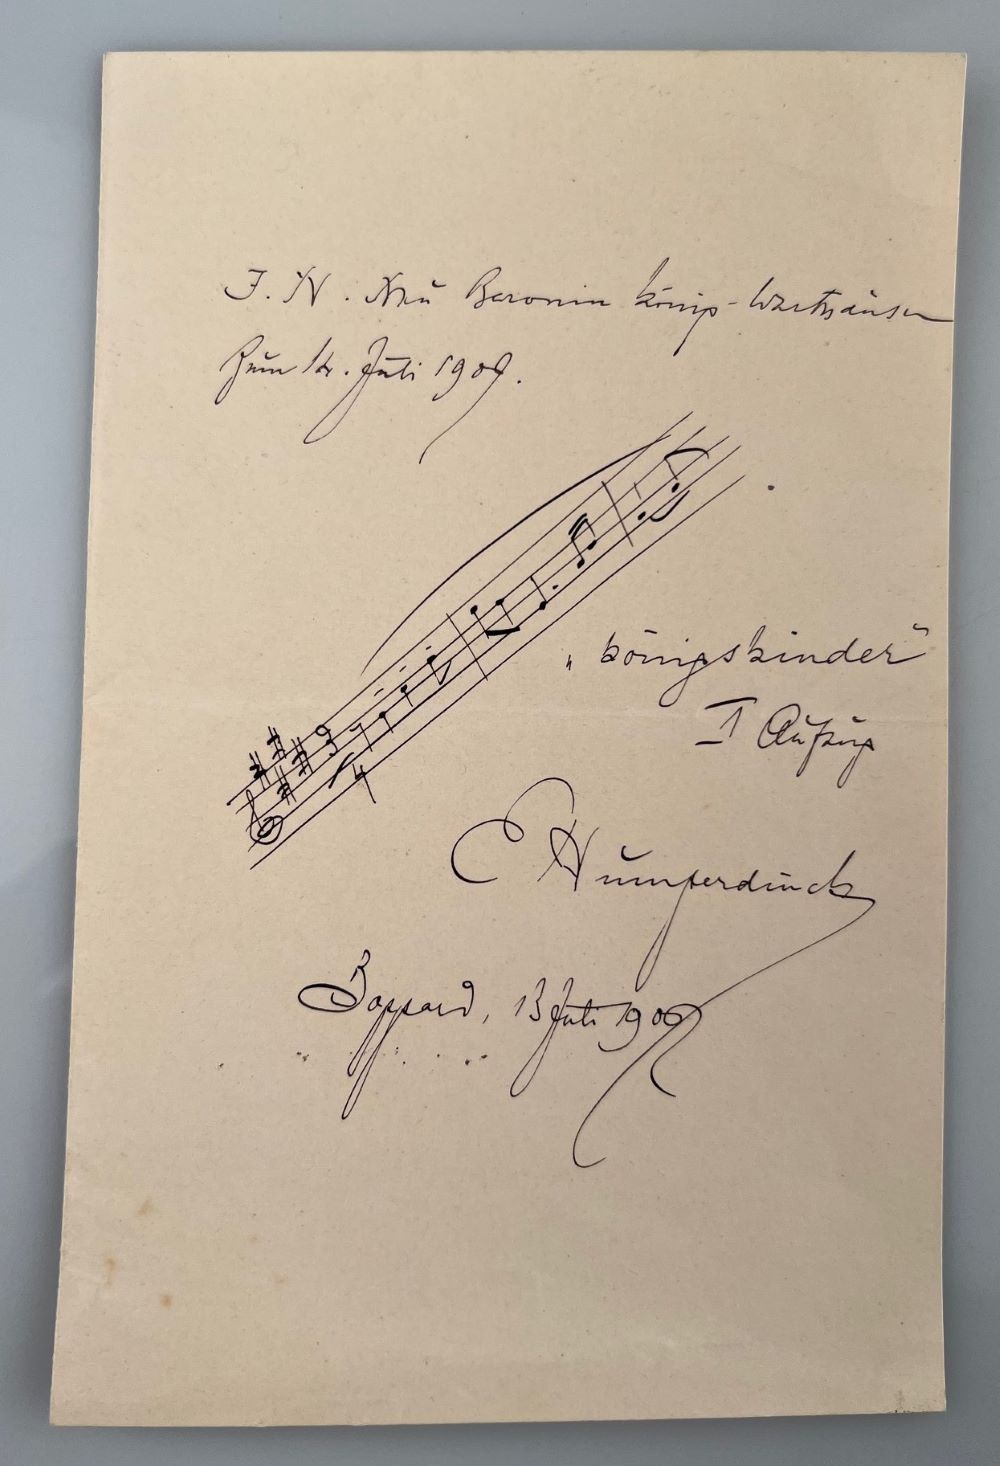 Frau Baronin König-Warthausen
zum 14. Juli 1909.
„Königskinder"
I Aufzug
E Humperdinck
Boppard, 13 Juli 1909